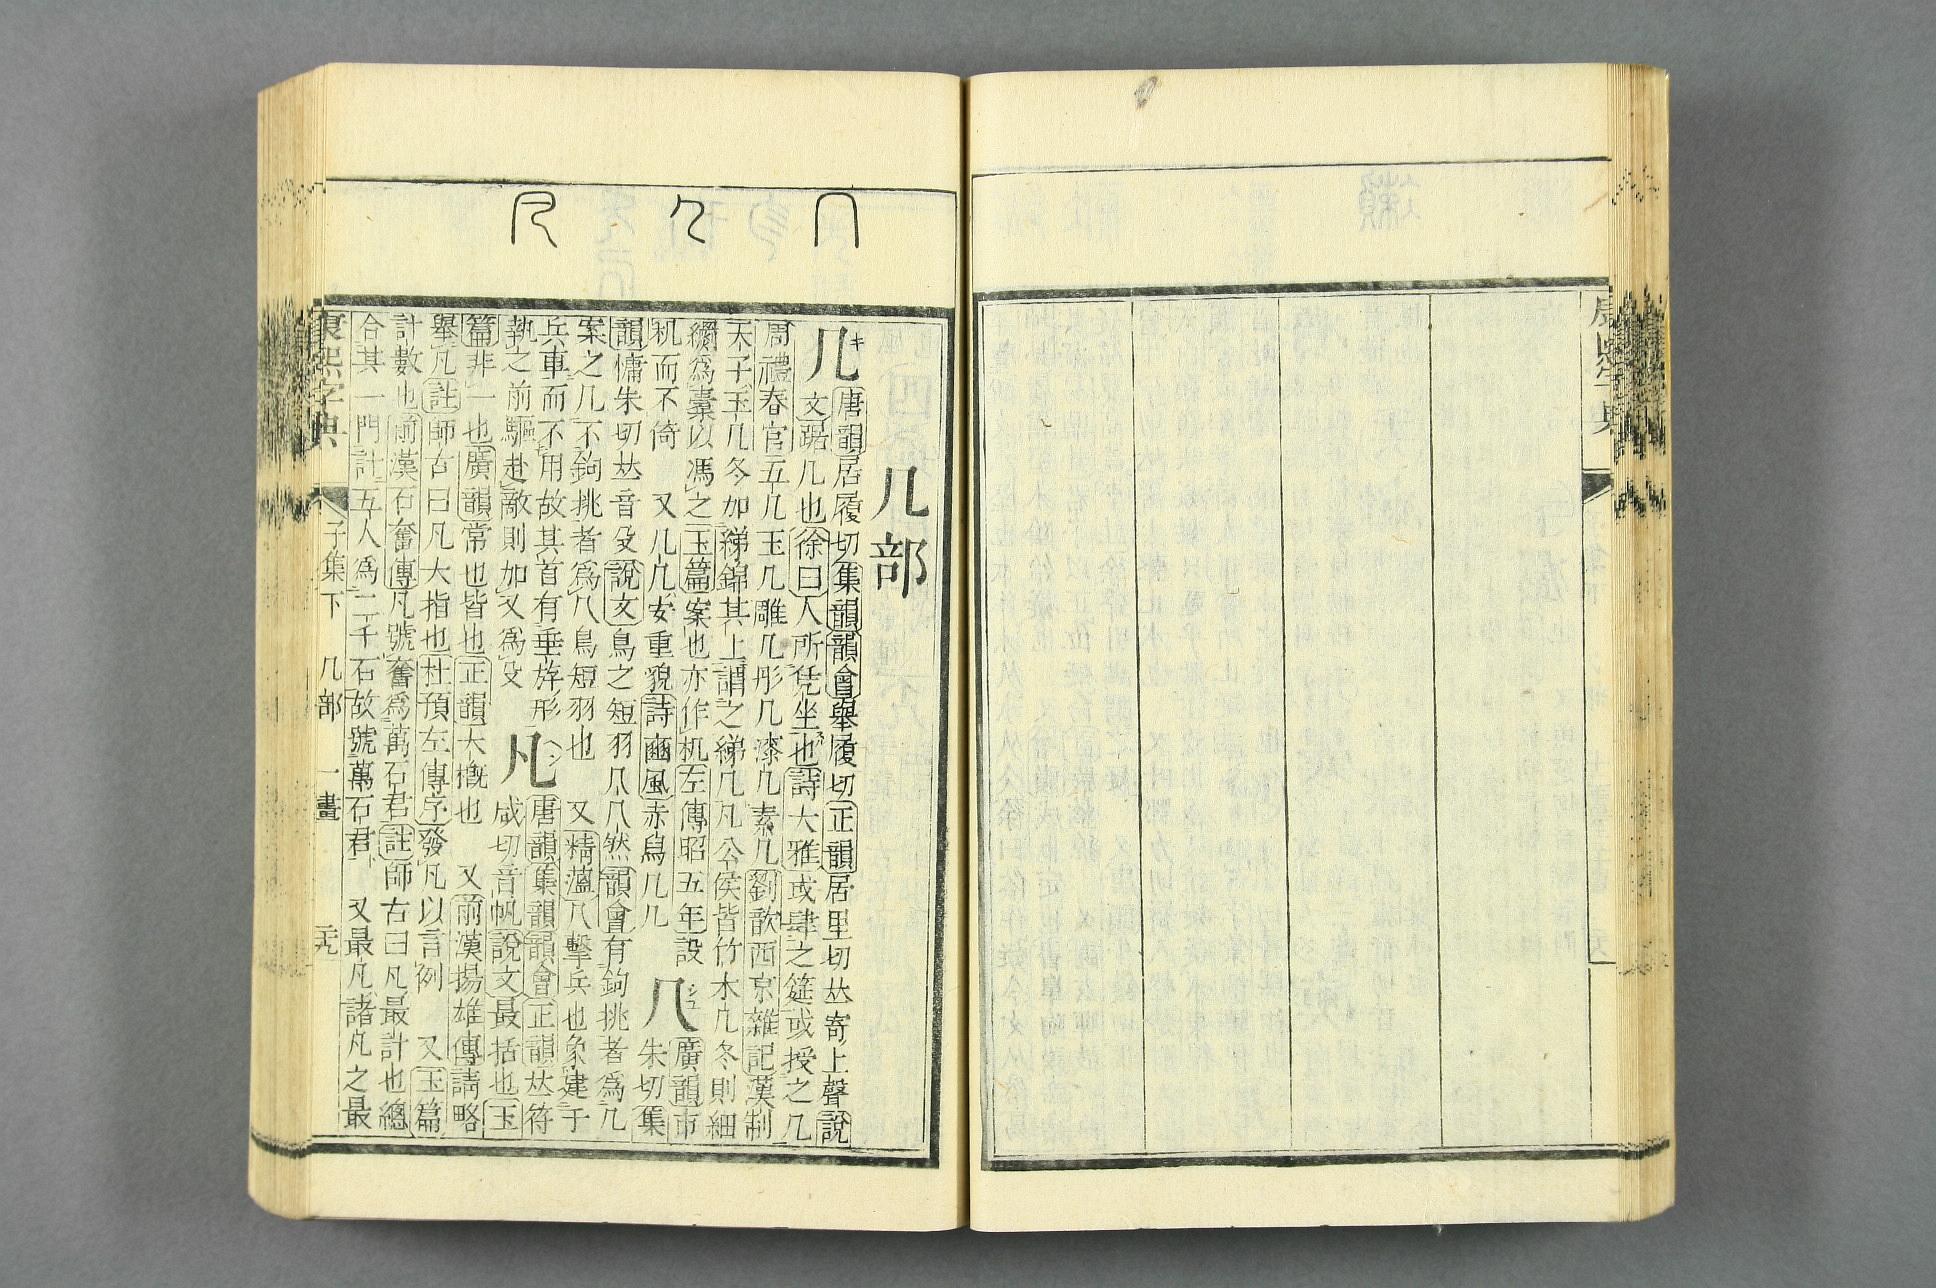 几部
几 キ 唐韻居履切集韻韻會舉履切正韻居里切𠀤寄上聲說
文踞几也徐曰人所凭坐也詩大雅或肆之筵或授之几
周禮春官五几玉几雕几彤几漆几素几劉歆西京雜記漢制
天子玉几冬加綈錦其上謂之綈几凡公侯皆竹木几冬則細
罽爲橐以馮之玉篇案也亦作机左傳昭五年設
机而不倚 又几几安重貌詩豳風赤舄几几
𠘧 シユ 廣韻市
朱切集
韻慵朱切𠀤音殳說文鳥之短羽𠘧𠘧然韻會有鉤挑者爲几
案之几不鉤挑者爲𠘧鳥短羽也 又精薀𠘧擊兵也象建于
兵車而不用故其首有垂斿形
凡 ハン 唐韻集韻韻會正韻𠀤符
執之前驅赴敵則加又爲殳
咸切音帆說文最括也玉
篇非一也廣韻常也皆也正韻大槪也 又前漢揚雄傳請略
舉凡註師古曰凡大指也杜預左傳序發凡以言例 又玉篇
計數也前漢石奮傳凡號奮爲萬石君註師古曰凡最計也總
合其一門計五人爲二千石故號萬石君 又最凡諸凡之最
康熙字典 子集下 几部 一畫 元